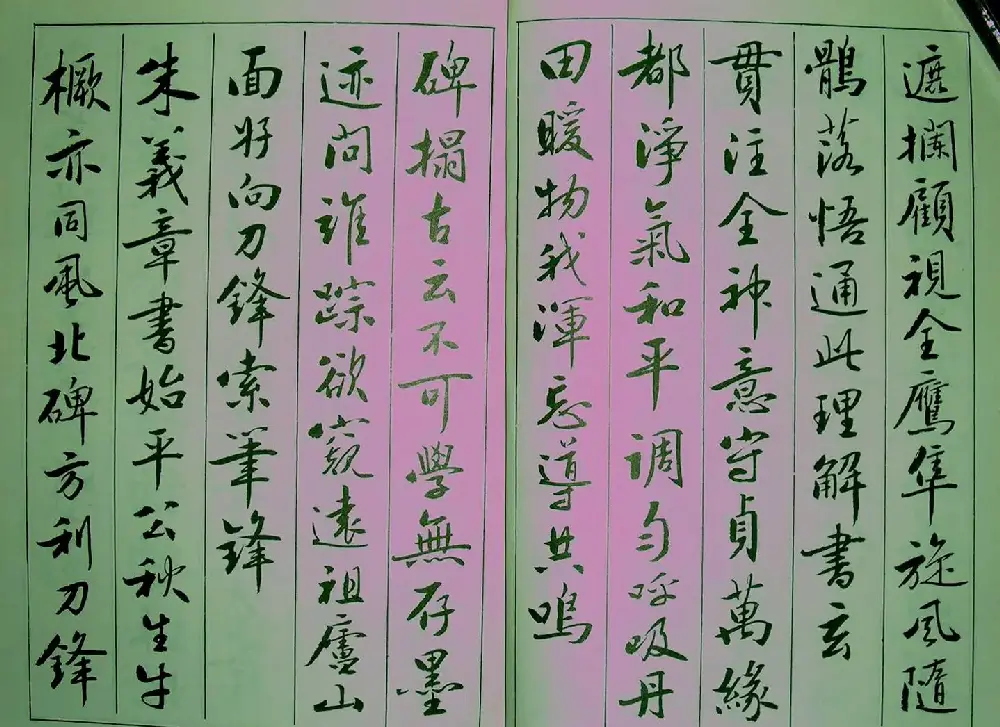 遮攔顧視全鷹隼旋風隨
鶻落悟通此理解書玄
貫注全神意守貞萬緣
都淨氣和平調勻呼吸丹
田暖物我渾忘導共鳴
碑搨古云不可學無存墨
迹問誰踪欲窺遠祖廬山
面好向刀鋒索筆鋒
朱義章書始平公秋生牛
橛亦同風北碑方利刀鋒